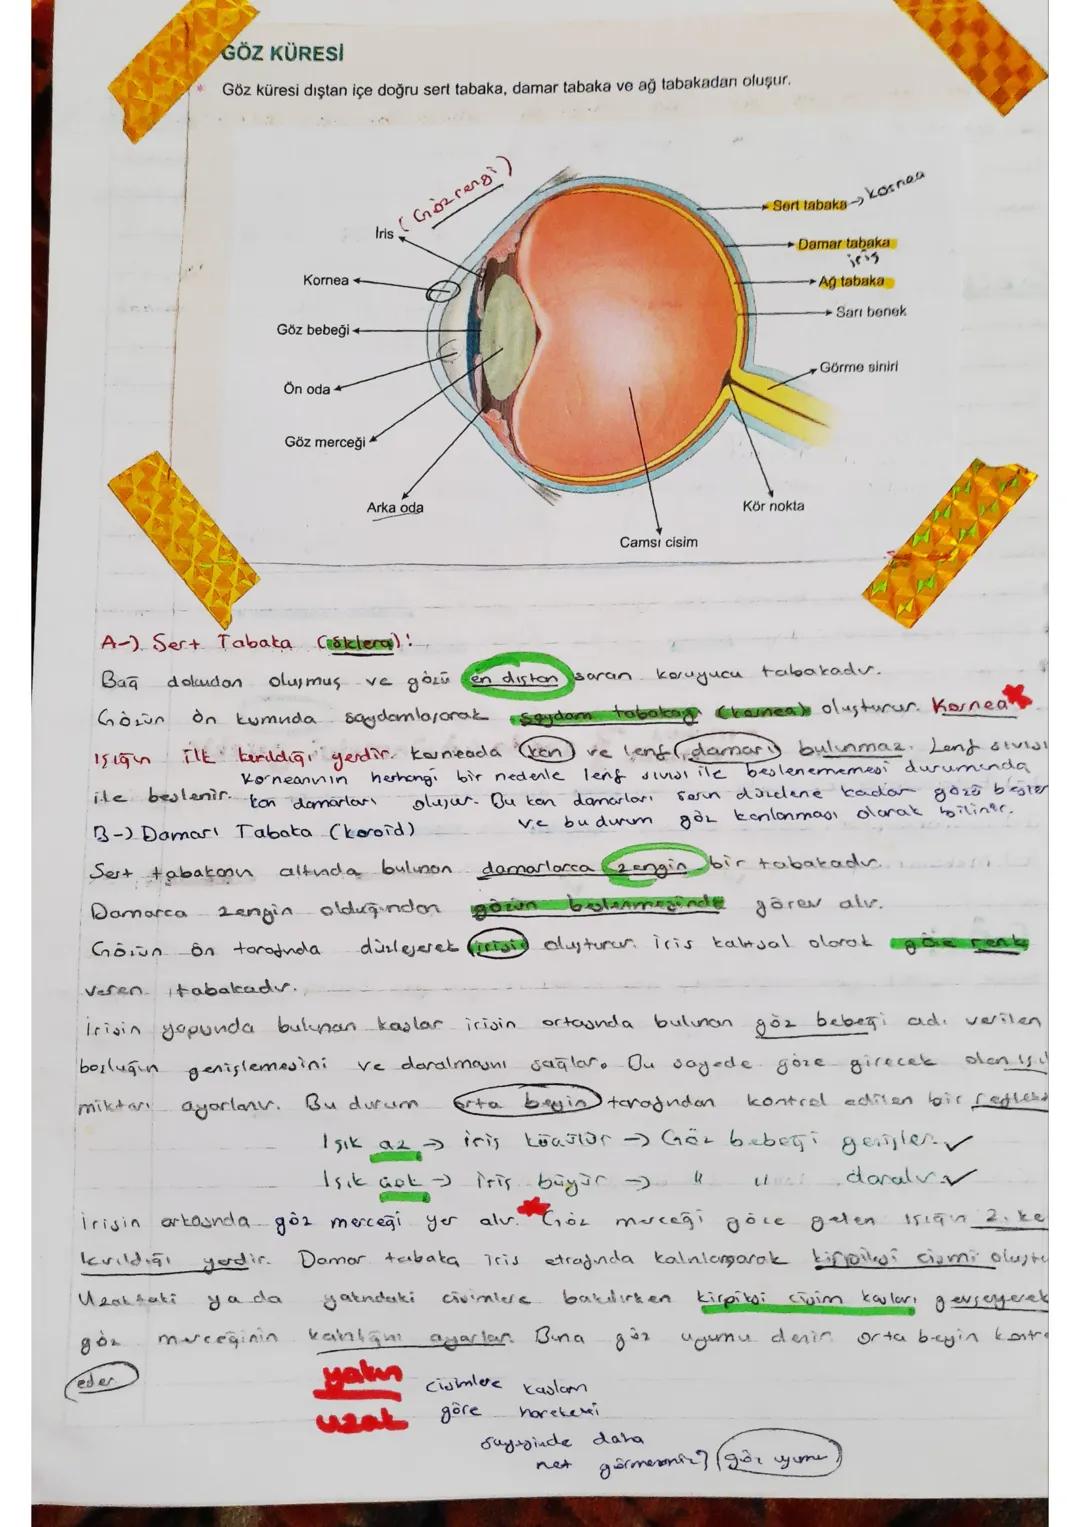 GÖZ KÜRESİ
* Göz küresi dıştan içe doğru sert tabaka, damar tabaka ve ağ tabakadan oluşur.
İris (Göz rengi)
Kornea
Göz bebeği
Ön oda
Göz merceği
Arka oda
Sert tabaka → kornea
Damar tabaka
iris
Ağ tabaka
Sarı benek
Görme siniri
Kör nokta
Camsı cisim
A-) Sert Tabaka (sklera):
Bağ dokudan oluşmuş ve gözü en dıştan saran koruyucu tabakadır.
Gözün ön kısmında saydamlaşarak saydam tabakayı (kornea) oluşturur. Kornea
ışığın ilk kırıldığı yerdir. Korneada kan ve lenf damarı bulunmaz. Lenf sıvısı
ile beslenir. Korneanının herhangi bir nedenle lenf sıvısı ile beslenememesi durumunda
kan damarları oluşur. Bu kan damarları sorun düzelene kadar gözü besler
ve bu durum göz kanlanması olarak bilinir.
B-) Damar Tabaka (koroid)
Sert tabakanın altında bulunan damarlarca zengin bir tabakadır.
Damarca zengin olduğundan gözün beslenmesinde görev alır.
Gözün ön tarafında düzleşerek irisi oluşturur. İris kalıtsal olarak göze renk
veren tabakadır.
İrisin yapısında bulunan kaslar irisin ortasında bulunan göz bebeği adı verilen
boşluğun genişlemesini ve daralmasını sağlar. Bu sayede göze girecek olan ışık
miktarı ayarlanır. Bu durum orta beyin tarafından kontrol edilen bir refleks
Işık az → iris küçülür → Göz bebeği genişler. ✓
Işık çok → iris büyür → " " daralır. ✓
İrisin arkasında göz merceği yer alır. Göz merceği göze gelen ışığın 2. ke
kırıldığı yerdir. Damar tabaka iris etrafında kalınlaşarak kirpiksi cismi oluştu
Uzaktaki ya da yakındaki cisimlere bakılırken kirpiksi cisim kasları gevşeyerek
göz merceğinin kalınlığını ayarlar. Buna göz uyumu denir orta beyin kontro
eder
yakın
uzak
cisimlere kasların
göre hareketi
sayesinde daha
net görmemiz? göz uyumu